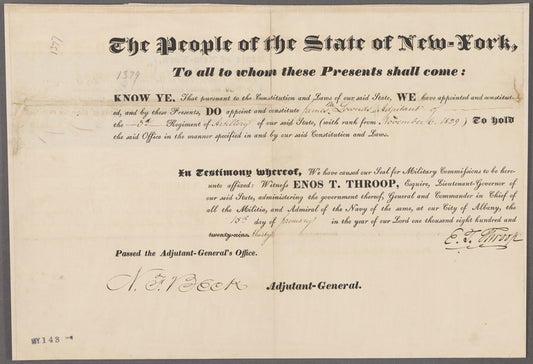 1377
1379
The People of the State of New-York,
To all to whom these Presents shall come:
KNOW YE, That pursuant to the Constitution and Laws of our said State, WE have appointed and constitut-
ed, and by these Presents, DO appoint and constitute James Adjutant of
the Regiment of Artillery of our said State, (with rank from November 6, 1829) To hold
the said Office in the manner specified in and by our said Constitution and Laws.
In Testimony whereof, We have caused our Seal for Military Commissions to be here-
unto affixed: Witness ENOS T. THROOP, Esquire, Lieutenant-Governor of
our said State, administering the government thereof, General and Commander in Chief of
all the Militia, and Admiral of the Navy of the same, at our City of Albany, the
day of January in the year of our Lord one thousand eight hundred and
twenty-nine thirty
E. T. Throop
Passed the Adjutant-General's Office.
N. F. Beck Adjutant-General.
MY 143